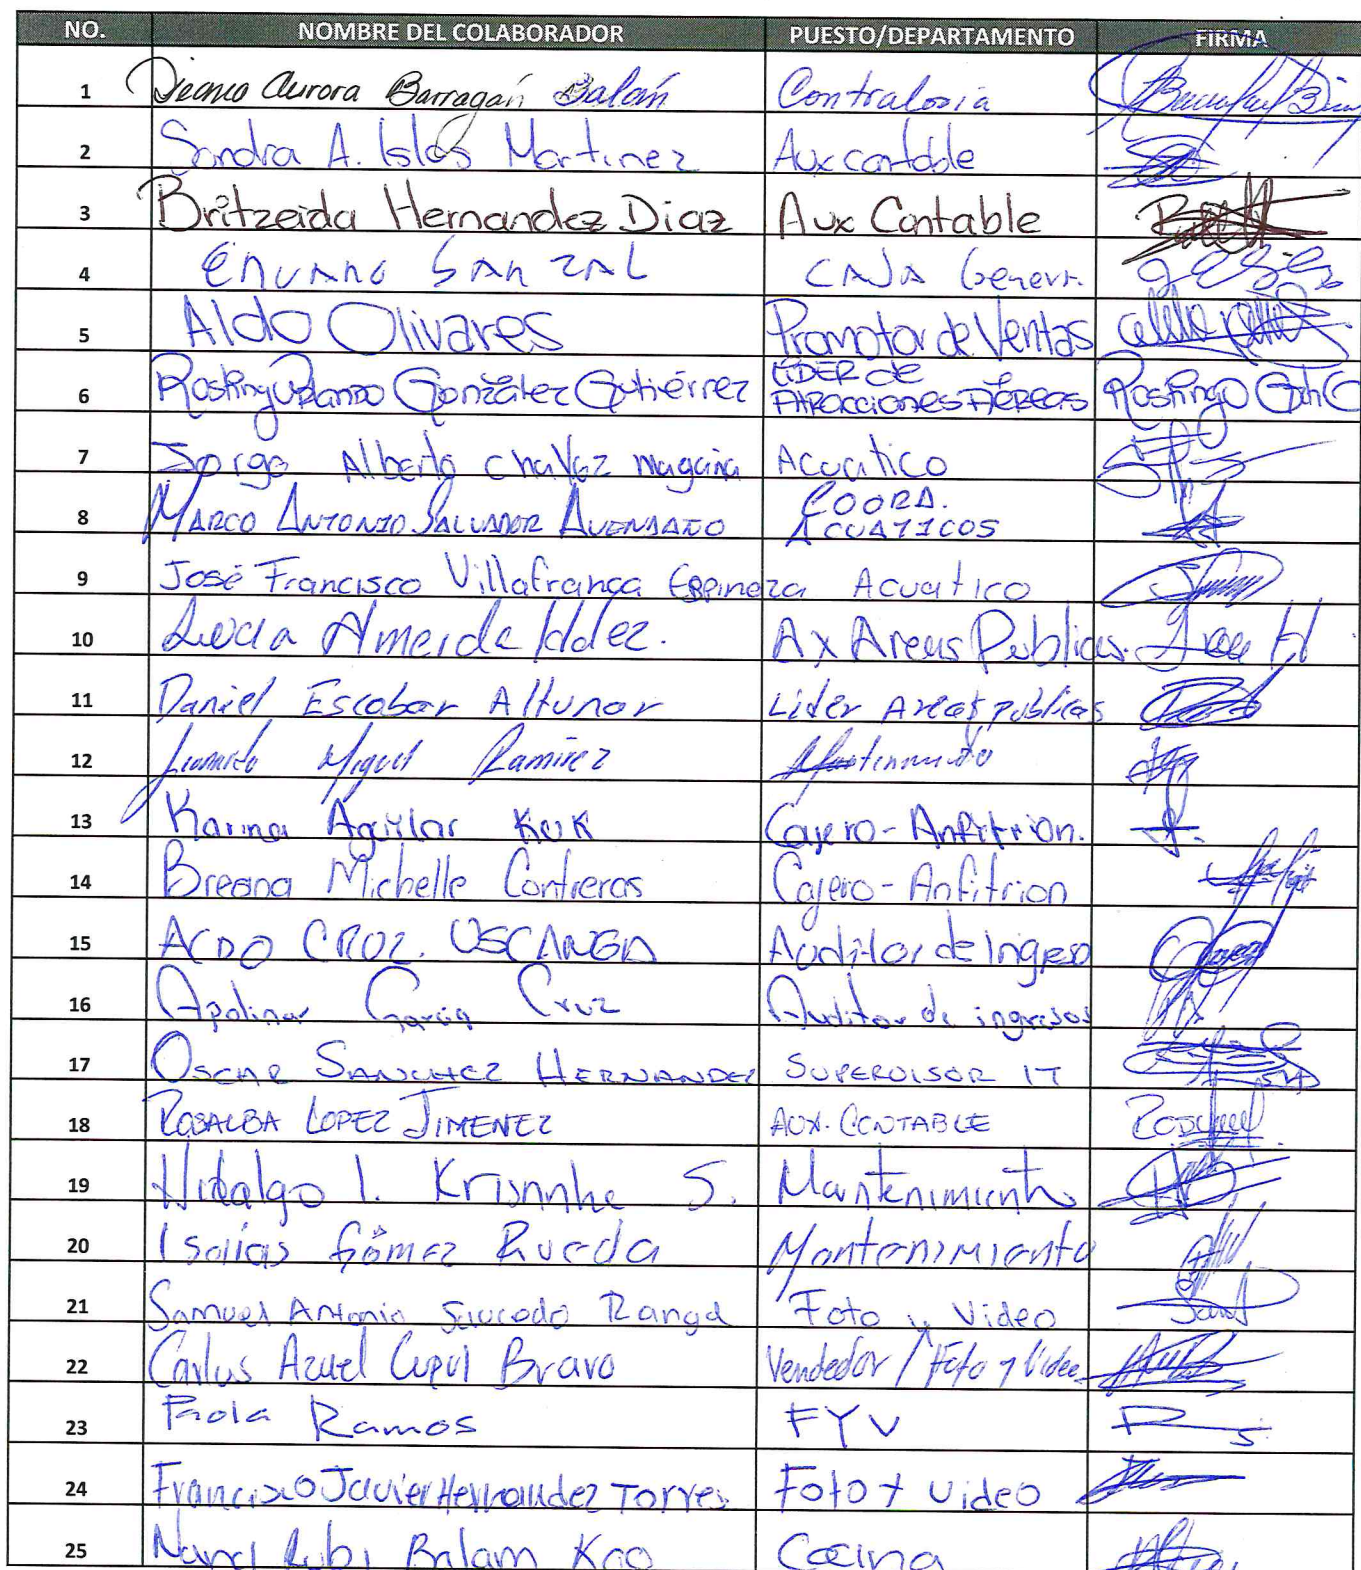 NO. NOMBRE DEL COLABORADOR PUESTO/DEPARTAMENTO FIRMA
1 Aurora Barragán Contraloria
2 Sandra A. Islas Martinez Aux contable
3 Britzeida Hernandez Diaz Aux Contable
4 CAJA
5 Aldo Olivares Promotor de Ventas
6 González Gutiérrez LÍDER de ATRACCIONES AÉREAS
7 Jorge Alberto Chavez magaña Acuatico
8 MARCO ANTONIO SALVADOR AVENDAÑO COORD. ACUATICOS
9 José Francisco Villafranca Espinoza Acuatico
10 Almeida Hdez. Ax Areas Publicas.
11 Daniel Escobar Altunar Lider Areas publicas
12 Miguel Ramirez Mantenimiento
13 Karina Aguilar KUK Cajero-Anfitrion.
14 Breana Michelle Contreras Cajero-Anfitrion
15 ALDO CRUZ. USCANGA Auditor de Ingreso
16 Apolinar Garcia Cruz Auditor de ingresos
17 OSCAR SANCHEZ HERNANDEZ SUPERVISOR IT
18 ROSALBA LOPEZ JIMENEZ AUX. CONTABLE
19 Hidalgo I. S. Mantenimiento
20 Isaias Gómez Rueda Mantenimiento
21 Samuel Antonio Saucedo Rangel Foto y Video
22 Carlos Azael Cupul Bravo Vendedor / Foto y Video
23 Paola Ramos FYV
24 Francisco Javier Hernandez Torres Foto y video
25 Rubi Balam Kao Cocina